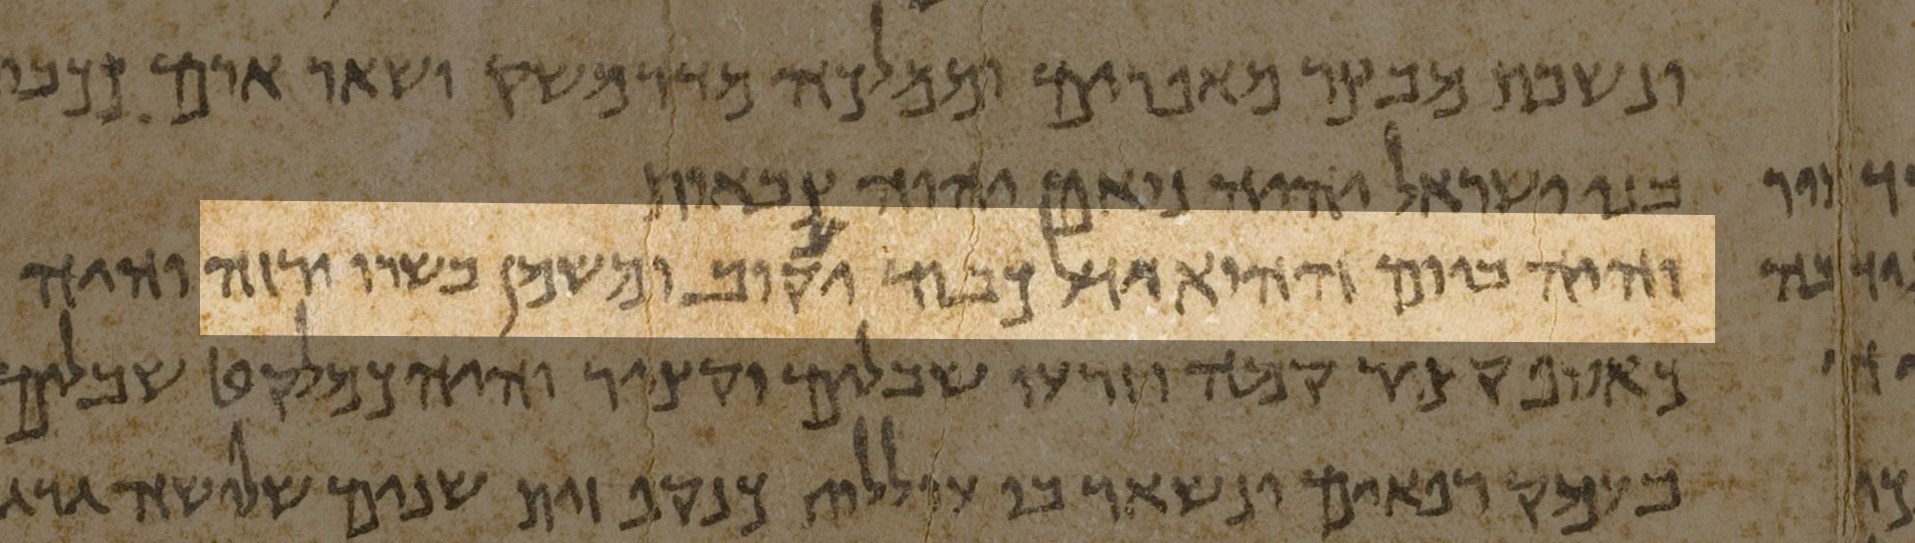 ונשבת מבצר מאפרים וממלכה מדרמשק ושאר ארם ככבו
בני ישראל יהיה נואם יהוה צבאות
והיה ביום ההוא ידל כבוד יעקוב ומשמן בשרו ירזה והיה
כאסף קציר קמה וזרעו שבלים יקצור והיה כמלקט שבלים
בעמק רפאים ונשאר בו עוללות כנקף זית שנים שלושה